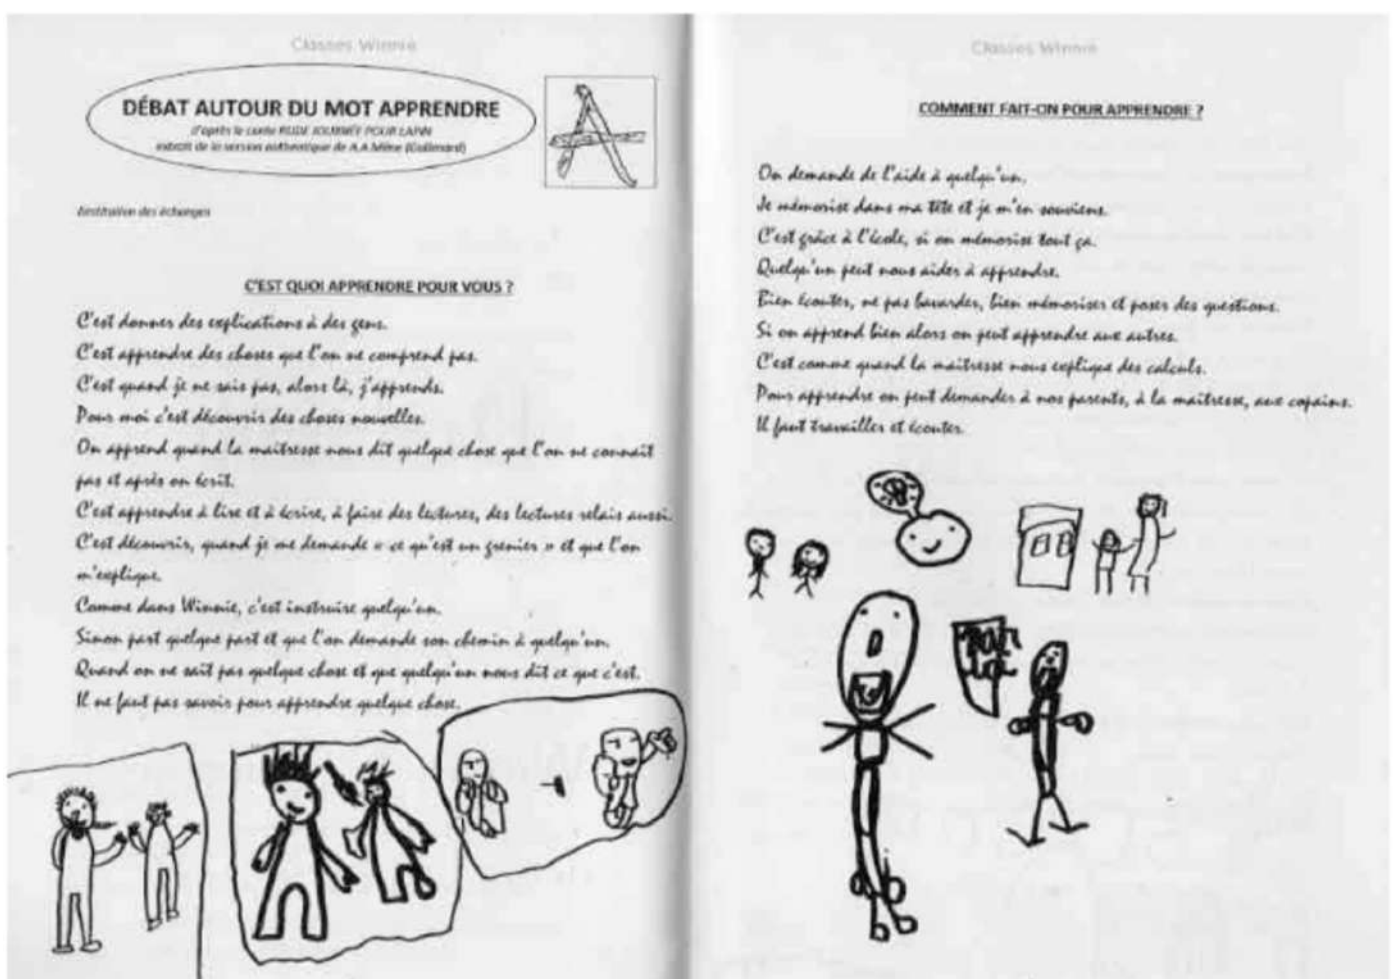 Classes Winnie
DÉBAT AUTOUR DU MOT APPRENDRE
d'après le conte RUDE JOURNÉE POUR LAPIN
extrait de la version authentique de A.A Milne (Gallimard)
Restitution des échanges
C'EST QUOI APPRENDRE POUR VOUS ?
C'est donner des explications à des gens.
C'est apprendre des choses que l'on ne comprend pas.
C'est quand je ne sais pas, alors là, j'apprends.
Pour moi c'est découvrir des choses nouvelles.
On apprend quand la maîtresse nous dit quelque chose que l'on ne connaît
pas et après on écrit.
C'est apprendre à lire et à écrire, à faire des lectures, des lectures relais aussi.
C'est découvrir, quand je me demande « ce qu'est un grenier » et que l'on
m'explique.
Comme dans Winnie, c'est instruire quelqu'un.
Sinon part quelque part et que l'on demande son chemin à quelqu'un.
Quand on ne sait pas quelque chose et que quelqu'un nous dit ce que c'est.
Il ne faut pas savoir pour apprendre quelque chose.
Classes Winnie
COMMENT FAIT-ON POUR APPRENDRE ?
On demande de l'aide à quelqu'un.
Je mémorise dans ma tête et je m'en souviens.
C'est grâce à l'école, si on mémorise tout ça.
Quelqu'un peut nous aider à apprendre.
Bien écouter, ne pas bavarder, bien mémoriser et poser des questions.
Si on apprend bien alors on peut apprendre aux autres.
C'est comme quand la maîtresse nous explique des calculs.
Pour apprendre on peut demander à nos parents, à la maîtresse, aux copains.
Il faut travailler et écouter.